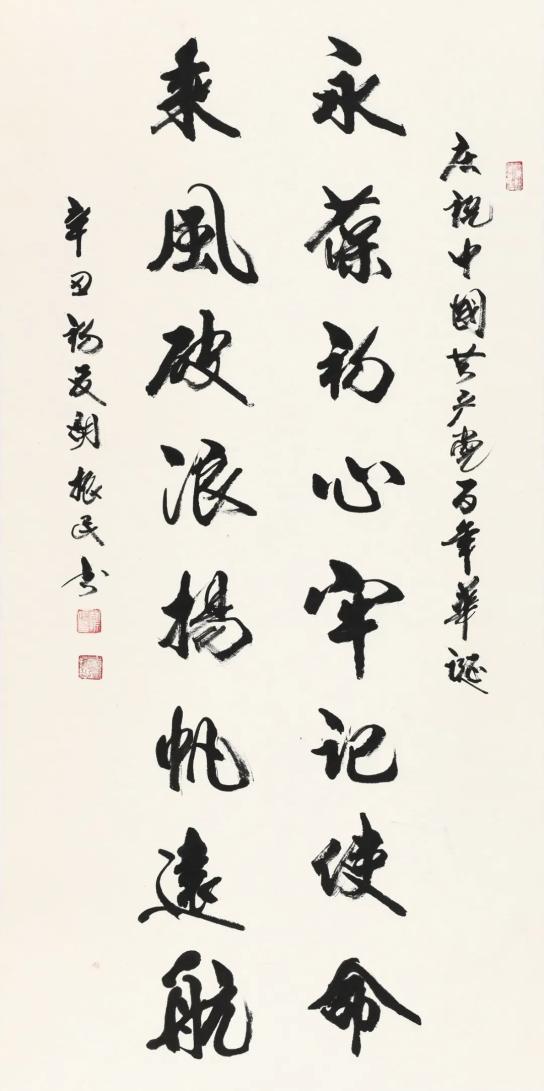 庆祝中國共产党百年華诞
永葆初心牢记使命
乘風破浪揚帆遠航
辛丑初夏胡振民书